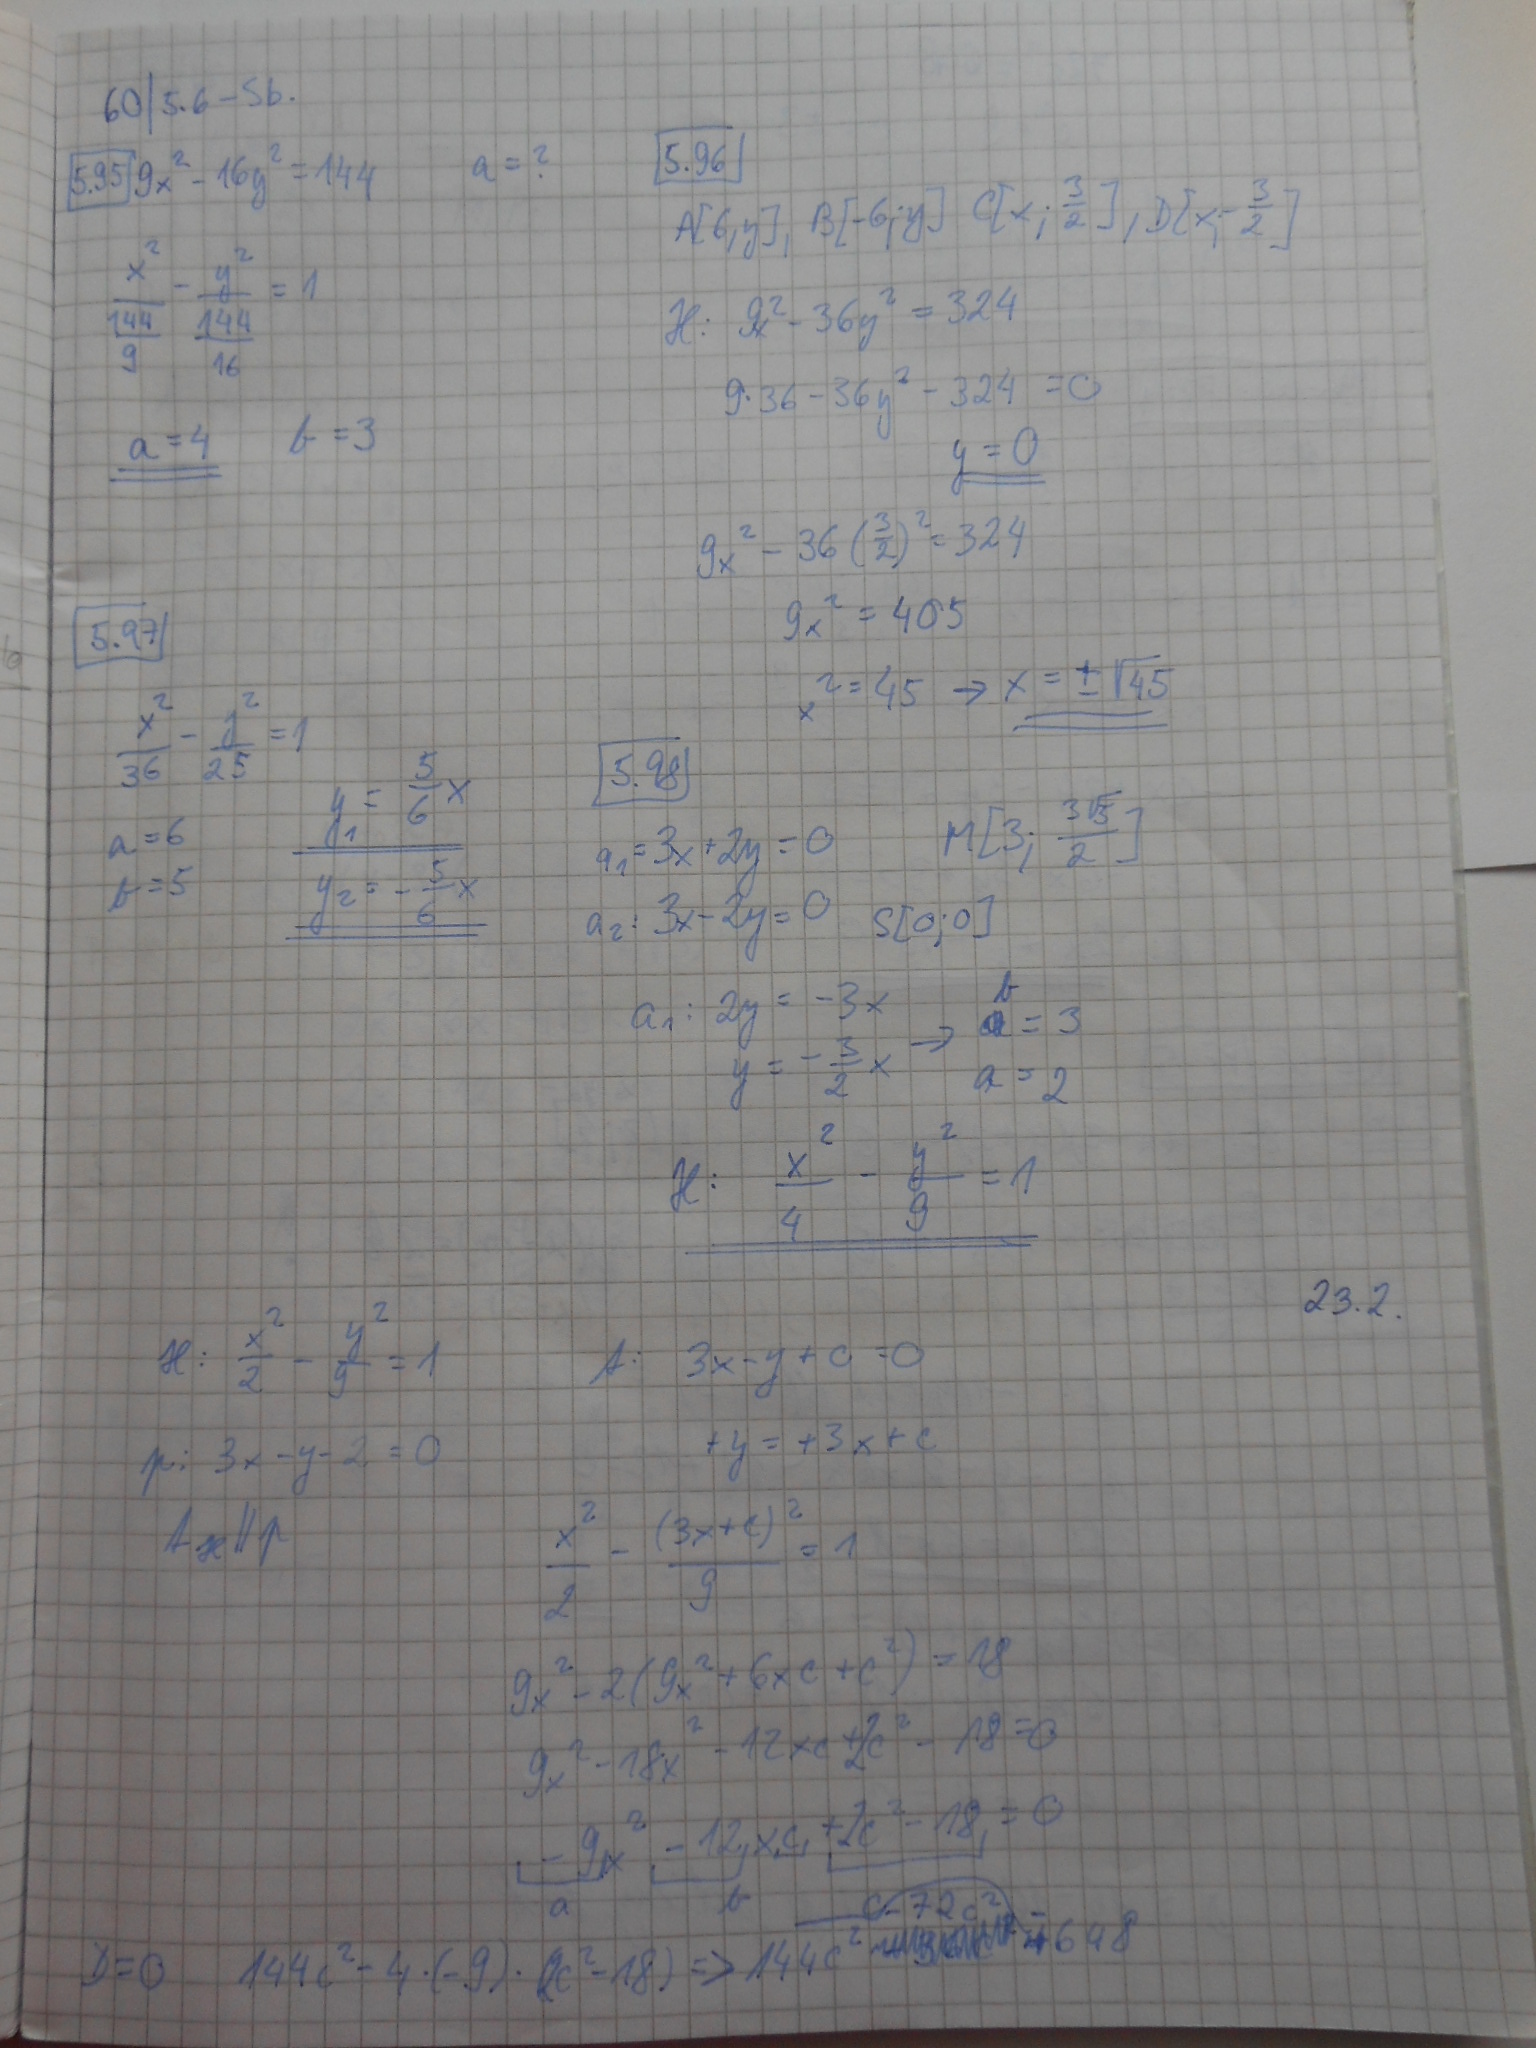 60/5.6 - Sb.
5.95 9x² - 16y² = 144 a = ?
x²/(144/9) - y²/(144/16) = 1
a = 4 b = 3
5.96
A[6, y], B[-6; y] C[x; 3/2], D[x; -3/2]
H: 9x² - 36y² = 324
9·36 - 36y² - 324 = 0
y = 0
9x² - 36(3/2)² = 324
9x² = 405
x² = 45 → x = ±√45
5.97
x²/36 - y²/25 = 1
a = 6
b = 5
y₁ = 5/6 x
y₂ = -5/6 x
5.98
a₁ = 3x + 2y = 0 M[3; 3√5/2]
a₂: 3x - 2y = 0 S[0; 0]
a₁: 2y = -3x
y = -3/2 x → b = 3
a = 2
H: x²/4 - y²/9 = 1
23.2.
H: x²/2 - y²/9 = 1
p: 3x - y - 2 = 0
t H || p
t: 3x - y + c = 0
+y = +3x + c
x²/2 - (3x+c)²/9 = 1
9x² - 2(9x² + 6xc + c²) = 18
9x² - 18x² - 12xc + 2c² - 18 = 0
-9x² - 12xc + 2c² - 18 = 0
a b c
D = 0 144c² - 4·(-9)·(2c² - 18) => 144c² - 72c² - 648